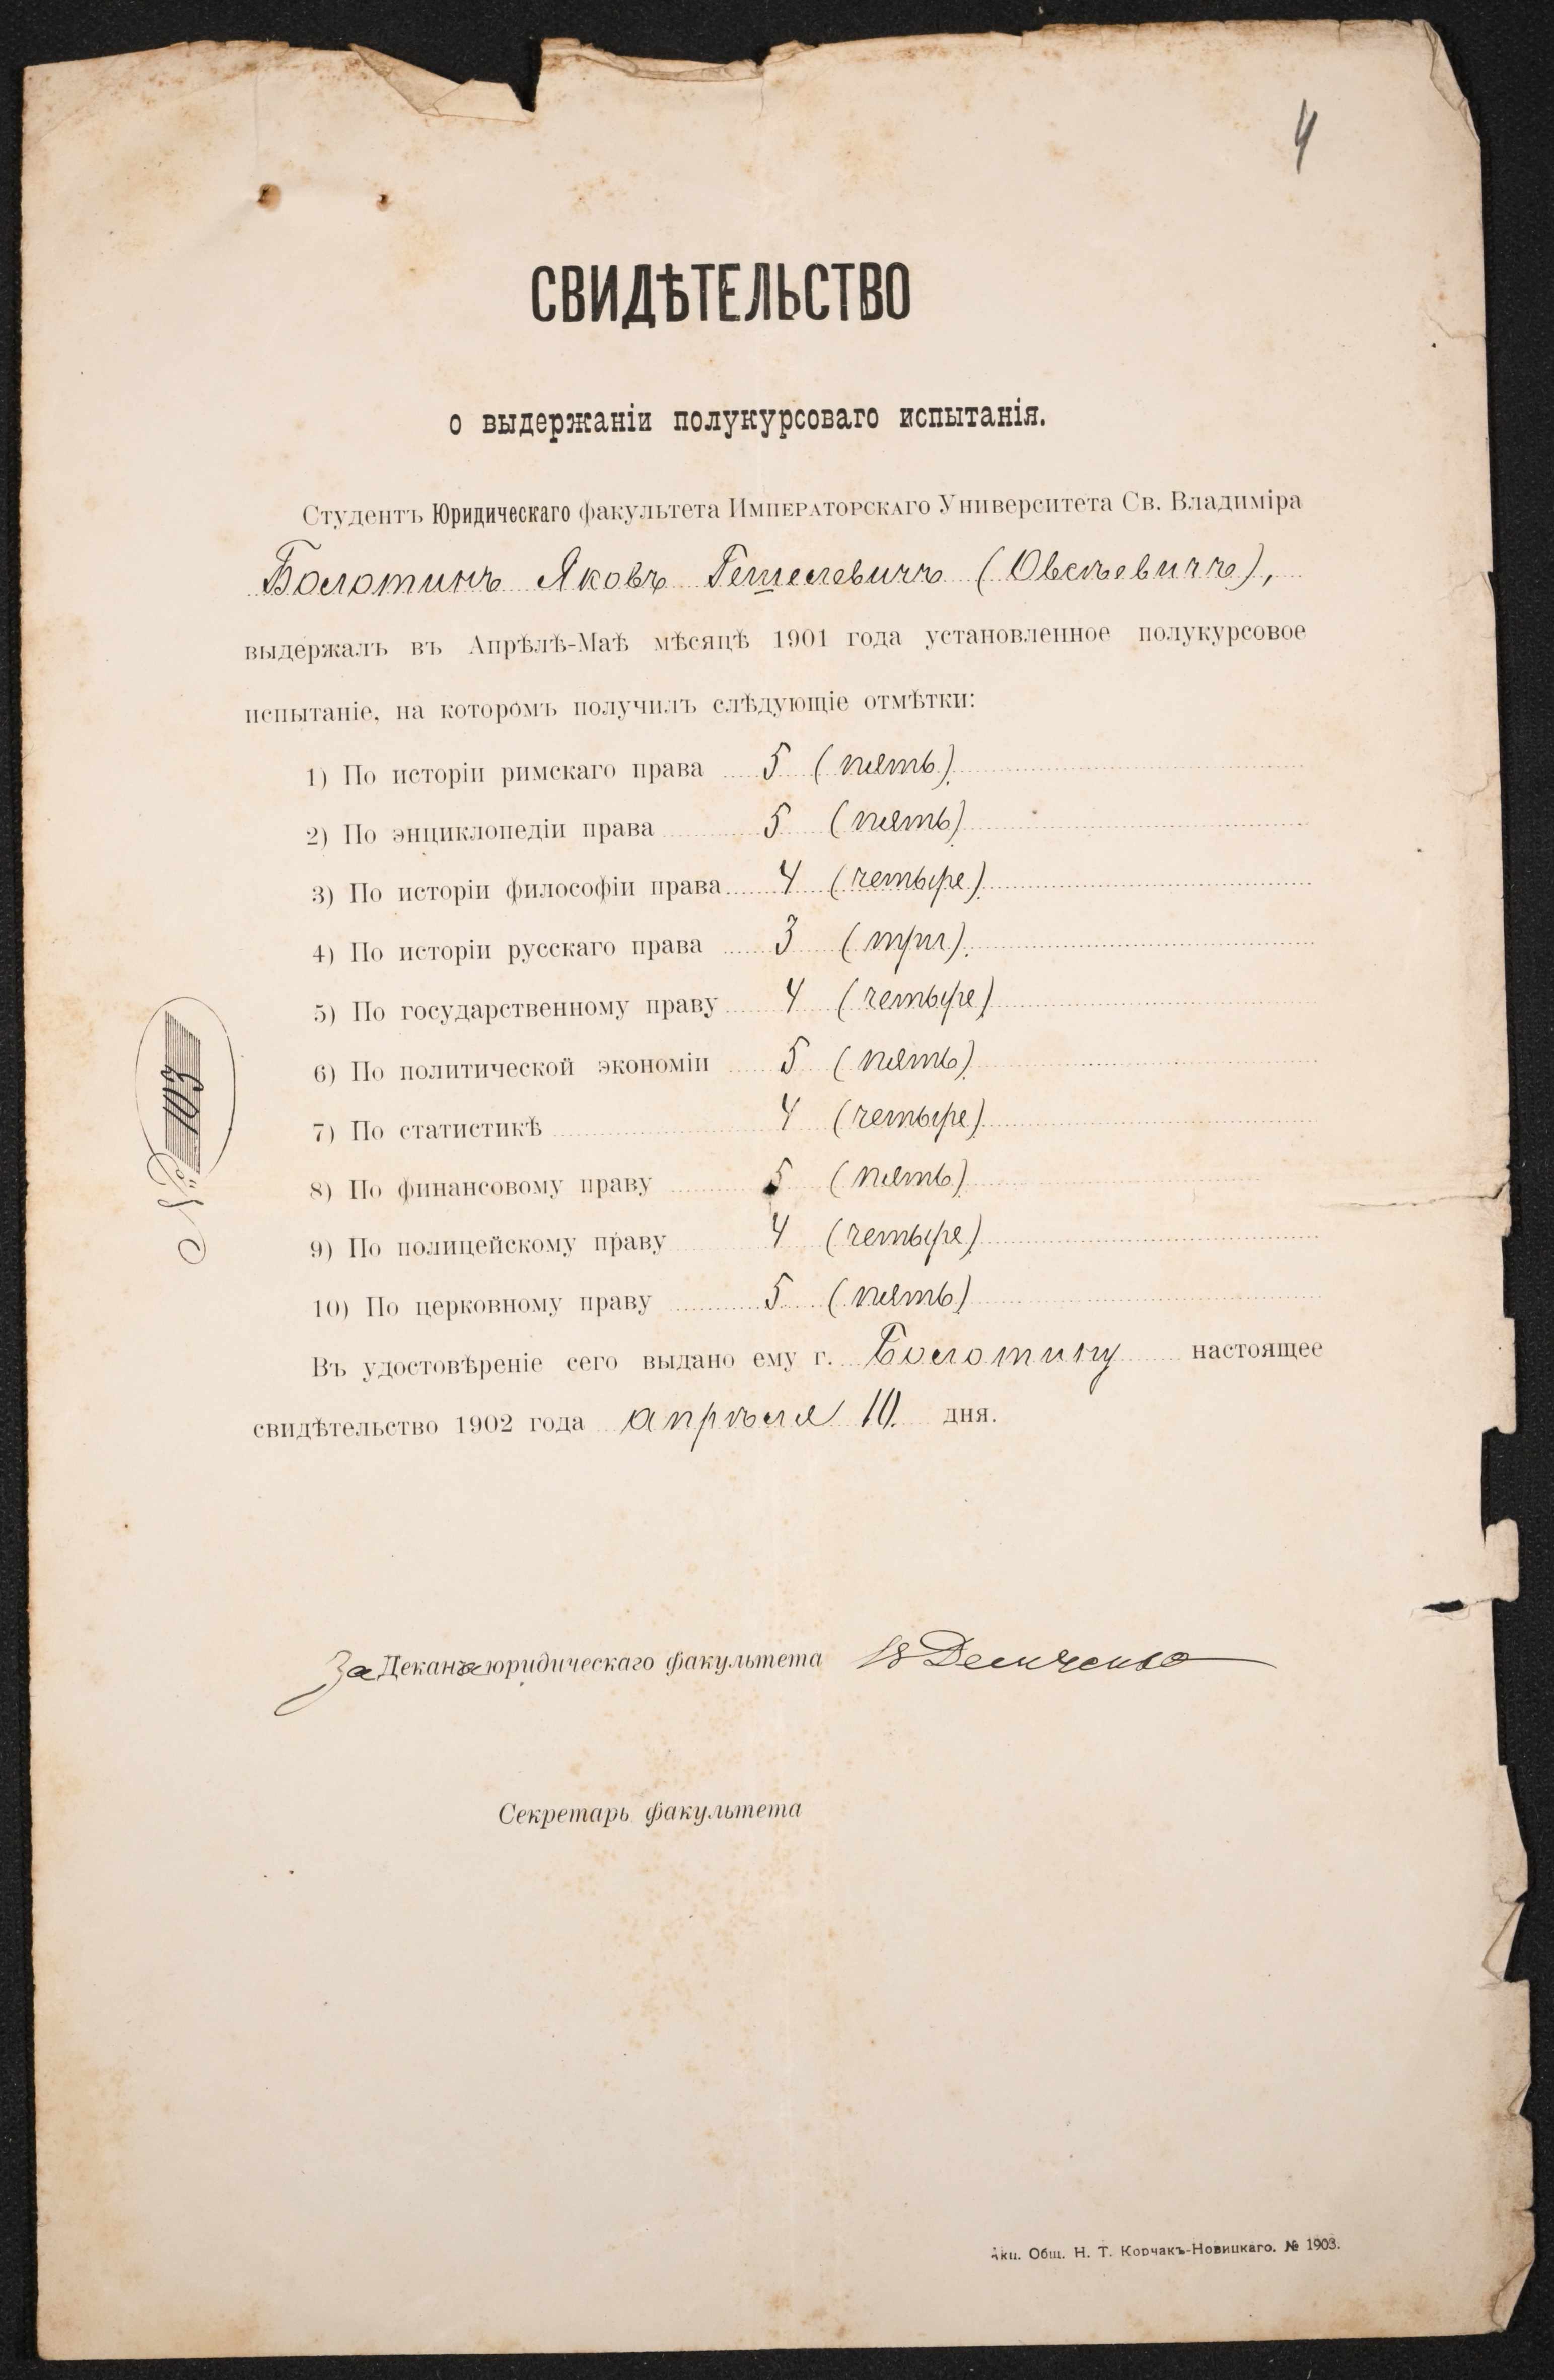 4
СВИДѢТЕЛЬСТВО
о выдержаніи полукурсоваго испытанія.
Студентъ Юридическаго факультета Императорскаго Университета Св. Владиміра
Болотинъ Яковъ Гешелевичъ (Овсѣевичъ),
выдержалъ въ Апрѣлѣ-Маѣ мѣсяцѣ 1901 года установленное полукурсовое
испытаніе, на которомъ получилъ слѣдующіе отмѣтки:
1) По исторіи римскаго права 5 (пять).
2) По энциклопедіи права 5 (пять).
3) По исторіи философіи права 4 (четыре).
4) По исторіи русскаго права 3 (три).
5) По государственному праву 4 (четыре).
6) По политической экономіи 5 (пять).
7) По статистикѣ 4 (четыре).
8) По финансовому праву 5 (пять).
9) По полицейскому праву 4 (четыре).
10) По церковному праву 5 (пять).
Въ удостовѣреніе сего выдано ему г. Болотину настоящее
свидѣтельство 1902 года апрѣля 10. дня.
№ 103
За Декана юридическаго факультета В Демченко
Секретарь факультета
Акц. Общ. Н. Т. Корчакъ-Новицкаго. № 1903.